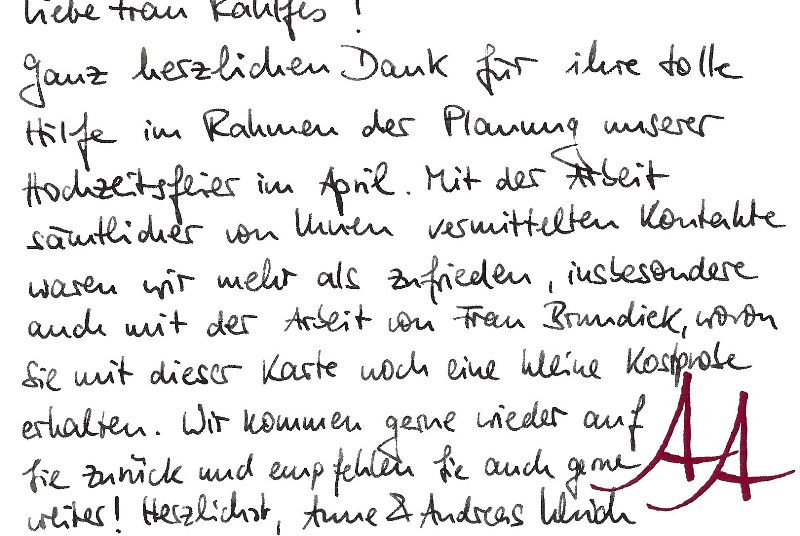 Liebe Frau Kahlfes !
Ganz herzlichen Dank für ihre tolle
Hilfe im Rahmen der Planung unserer
Hochzeitsfeier im April. Mit der Arbeit
sämtlicher von Ihnen vermittelten Kontakte
waren wir mehr als zufrieden, insbesondere
auch mit der Arbeit von Frau Brundiek, wovon
Sie mit dieser Karte noch eine kleine Kostprobe
erhalten. Wir kommen gerne wieder auf
Sie zurück und empfehlen Sie auch gerne
weiter! Herzlichst, Anne & Andreas Ulrich
AA